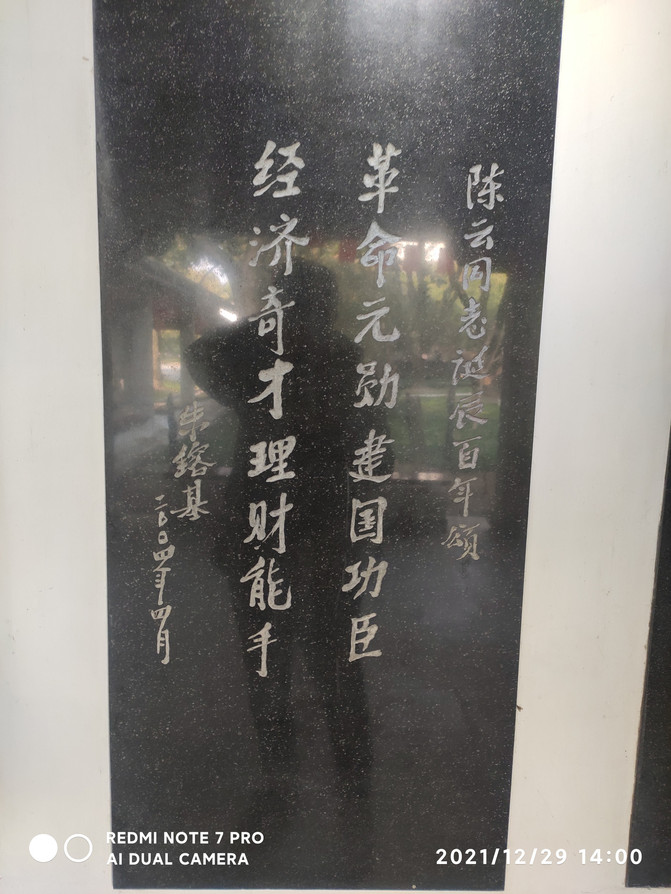 陈云同志诞辰百年颂
革命元勋建国功臣
经济奇才理财能手
朱镕基
二〇〇四年四月
REDMI NOTE 7 PRO
AI DUAL CAMERA
2021/12/29 14:00